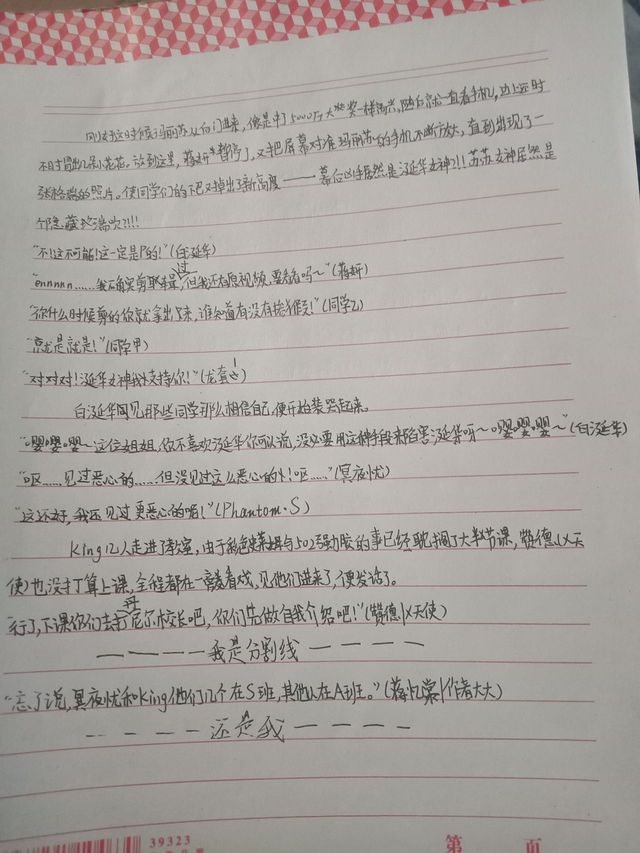 刚好这时候玛丽苏从后门进来,像是中了5000万大奖一样高兴,随后就一直看手机,边上还时
不时冒出几朵小花花。放到这里,蒋妍暂停了,又把屏幕对准玛丽苏的手机不断放大,直到出现了一
张的照片。使同学们的下巴又掉出了新高度———幕后凶手居然是汐延华女神?!!苏苏女神居然是
个隐藏?!!!
“不!这不可能!这一定是P的!”(白汐延华)
“ennnnn……我确实剪辑过,但我还有原视频,要看看吗~”(蒋妍)
“你什么时候剪的你就拿出来,谁知道有没有”(同学乙)
“就是就是!”(同学甲)
“对对对!汐延华女神我支持你!”(龙套心)
白汐延华网见那些同学那么相信自己,便开始装哭起来。
“嘤~嘤~嘤~这位姐姐,你不喜欢汐延华你可以说,没必要用这种手段来陷害汐延华呀~嘤嘤嘤~”(白汐延华)
“呕……见过恶心的……但没见过这么恶心的!呕……”(冥夜忧)
“这还好,我还见过更恶心的呢!”(Phantom·S)
King几人走进了教室,由于彩色与502强力胶的事已经耽搁了大半节课,赞德(乂天
使)也没打算上课,全程都在一旁看戏,见他们进来了,便发话了。
“行了,下课你们去找丹尼尔校长吧,你们先做自我介绍吧!”(赞德|乂天使)
————我是分割线————
“忘了说,冥夜忧和King他们几个在S班,其他人在A班。”(蒋忆棠|作者大大)
————还是我————
39323
第 页